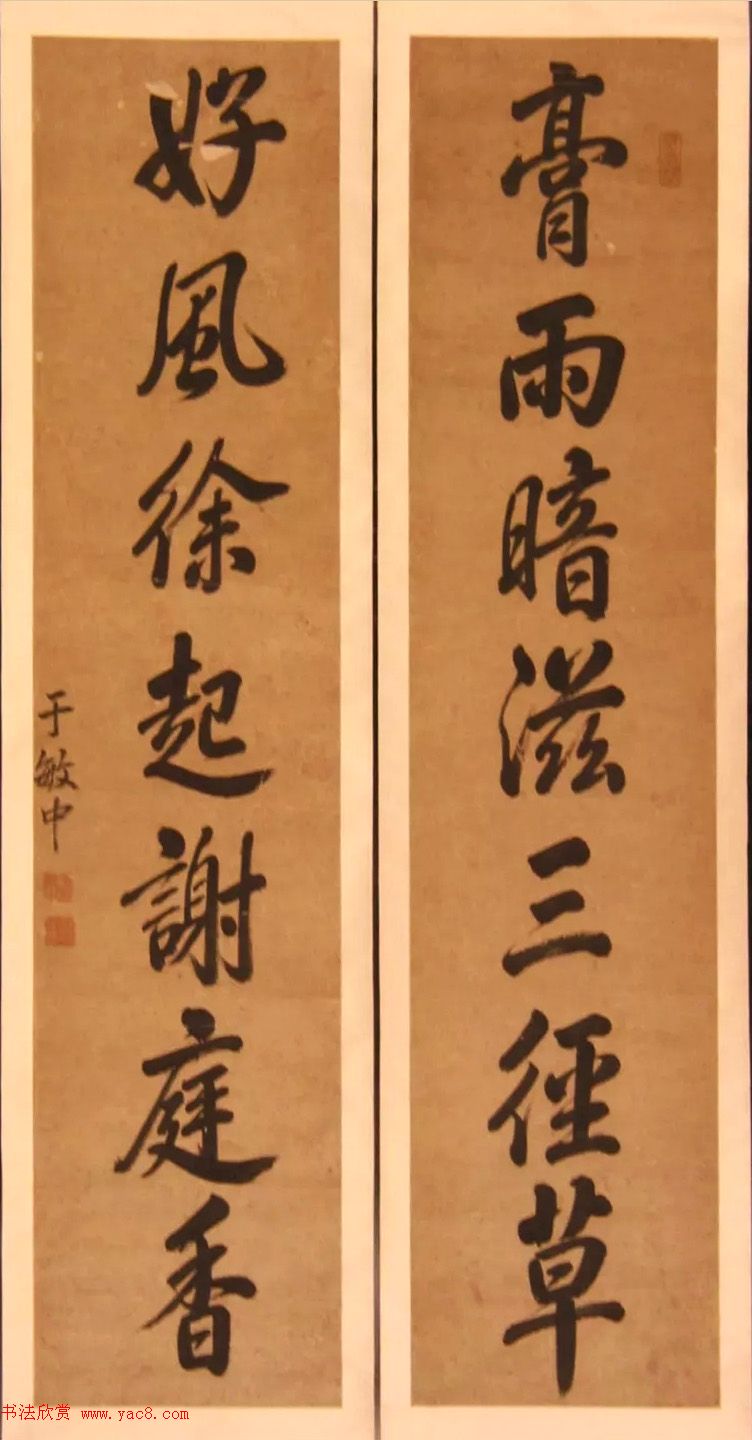 膏雨暗滋三徑草
好風徐起謝庭香
于敏中
书法欣赏 www.yac8.com